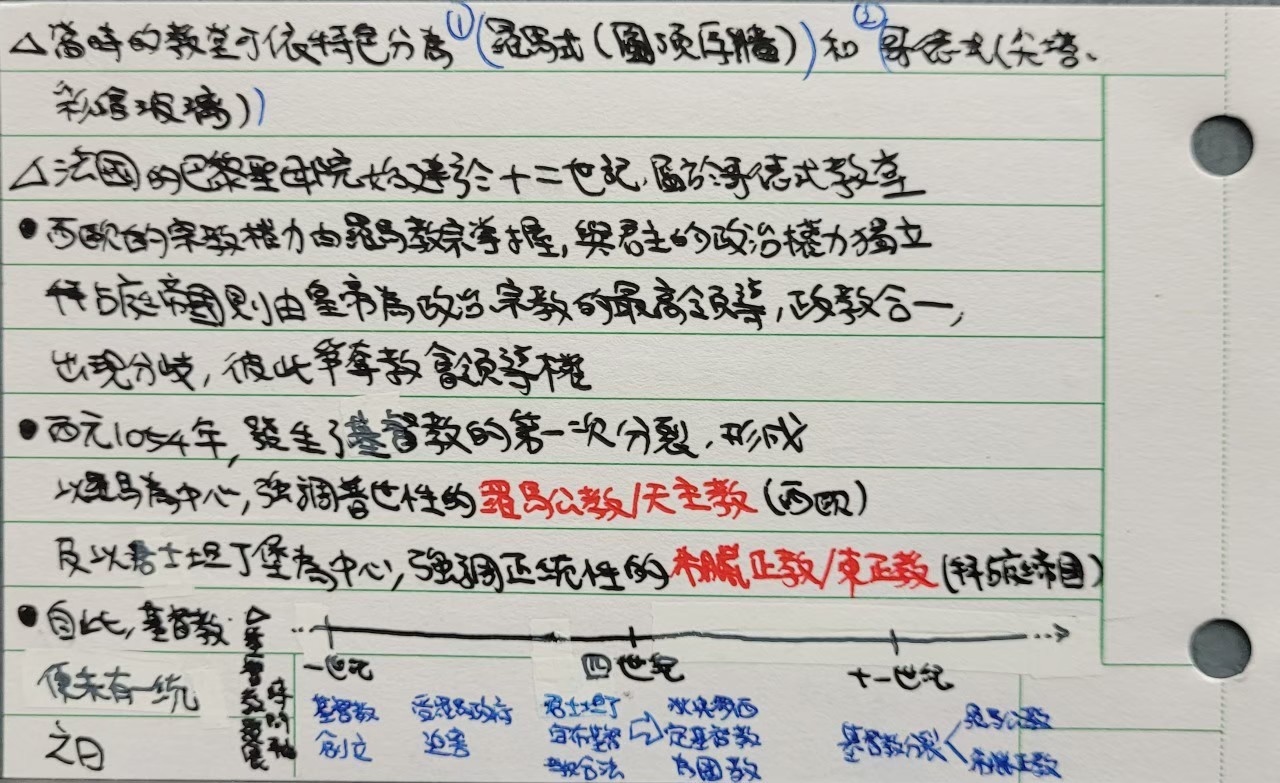 △當時的教堂可依特色分為①(羅馬式(圓頂厚牆))和②(哥德式(尖塔、
彩繪玻璃))
△法國的巴黎聖母院始建於十二世紀,屬於哥德式教堂
●西歐的宗教權力由羅馬教宗掌握,與君主的政治權力獨立
拜占庭帝國則由皇帝為政治、宗教的最高領導,政教合一,
出現分歧,彼此爭奪教會領導權
●西元1054年,發生了基督教的第一次分裂,形成
以羅馬為中心,強調普世性的羅馬公教/天主教(西歐)
及以君士坦丁堡為中心,強調正統性的希臘正教/東正教(拜占庭帝國)
●自此,基督教
便未有一統
之日
△基督教發展
時間軸
一世紀 四世紀 十一世紀
基督教 受羅馬政府 君士坦丁 狄奧多西
創立 迫害 宣布基督 → 定基督教
教合法 為國教
基督教分裂 羅馬公教
希臘正教